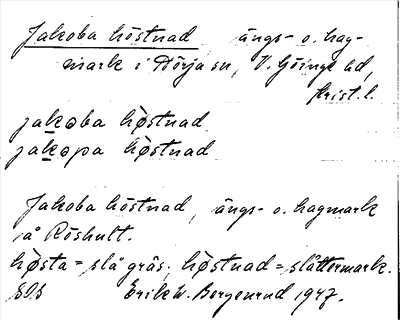 Jakoba höstnad ängs- o. hag-
mark i Hörja sn, V. Göinge hd,
Krist. l.
jakoba hòstnad
jakopa hòstnad
Jakoba höstnad, ängs- o. hagmark
på Röshult.
hòsta = slå gräs; hòstnad = slåttermark.
SOS Erik W. Bergenrud 1947.